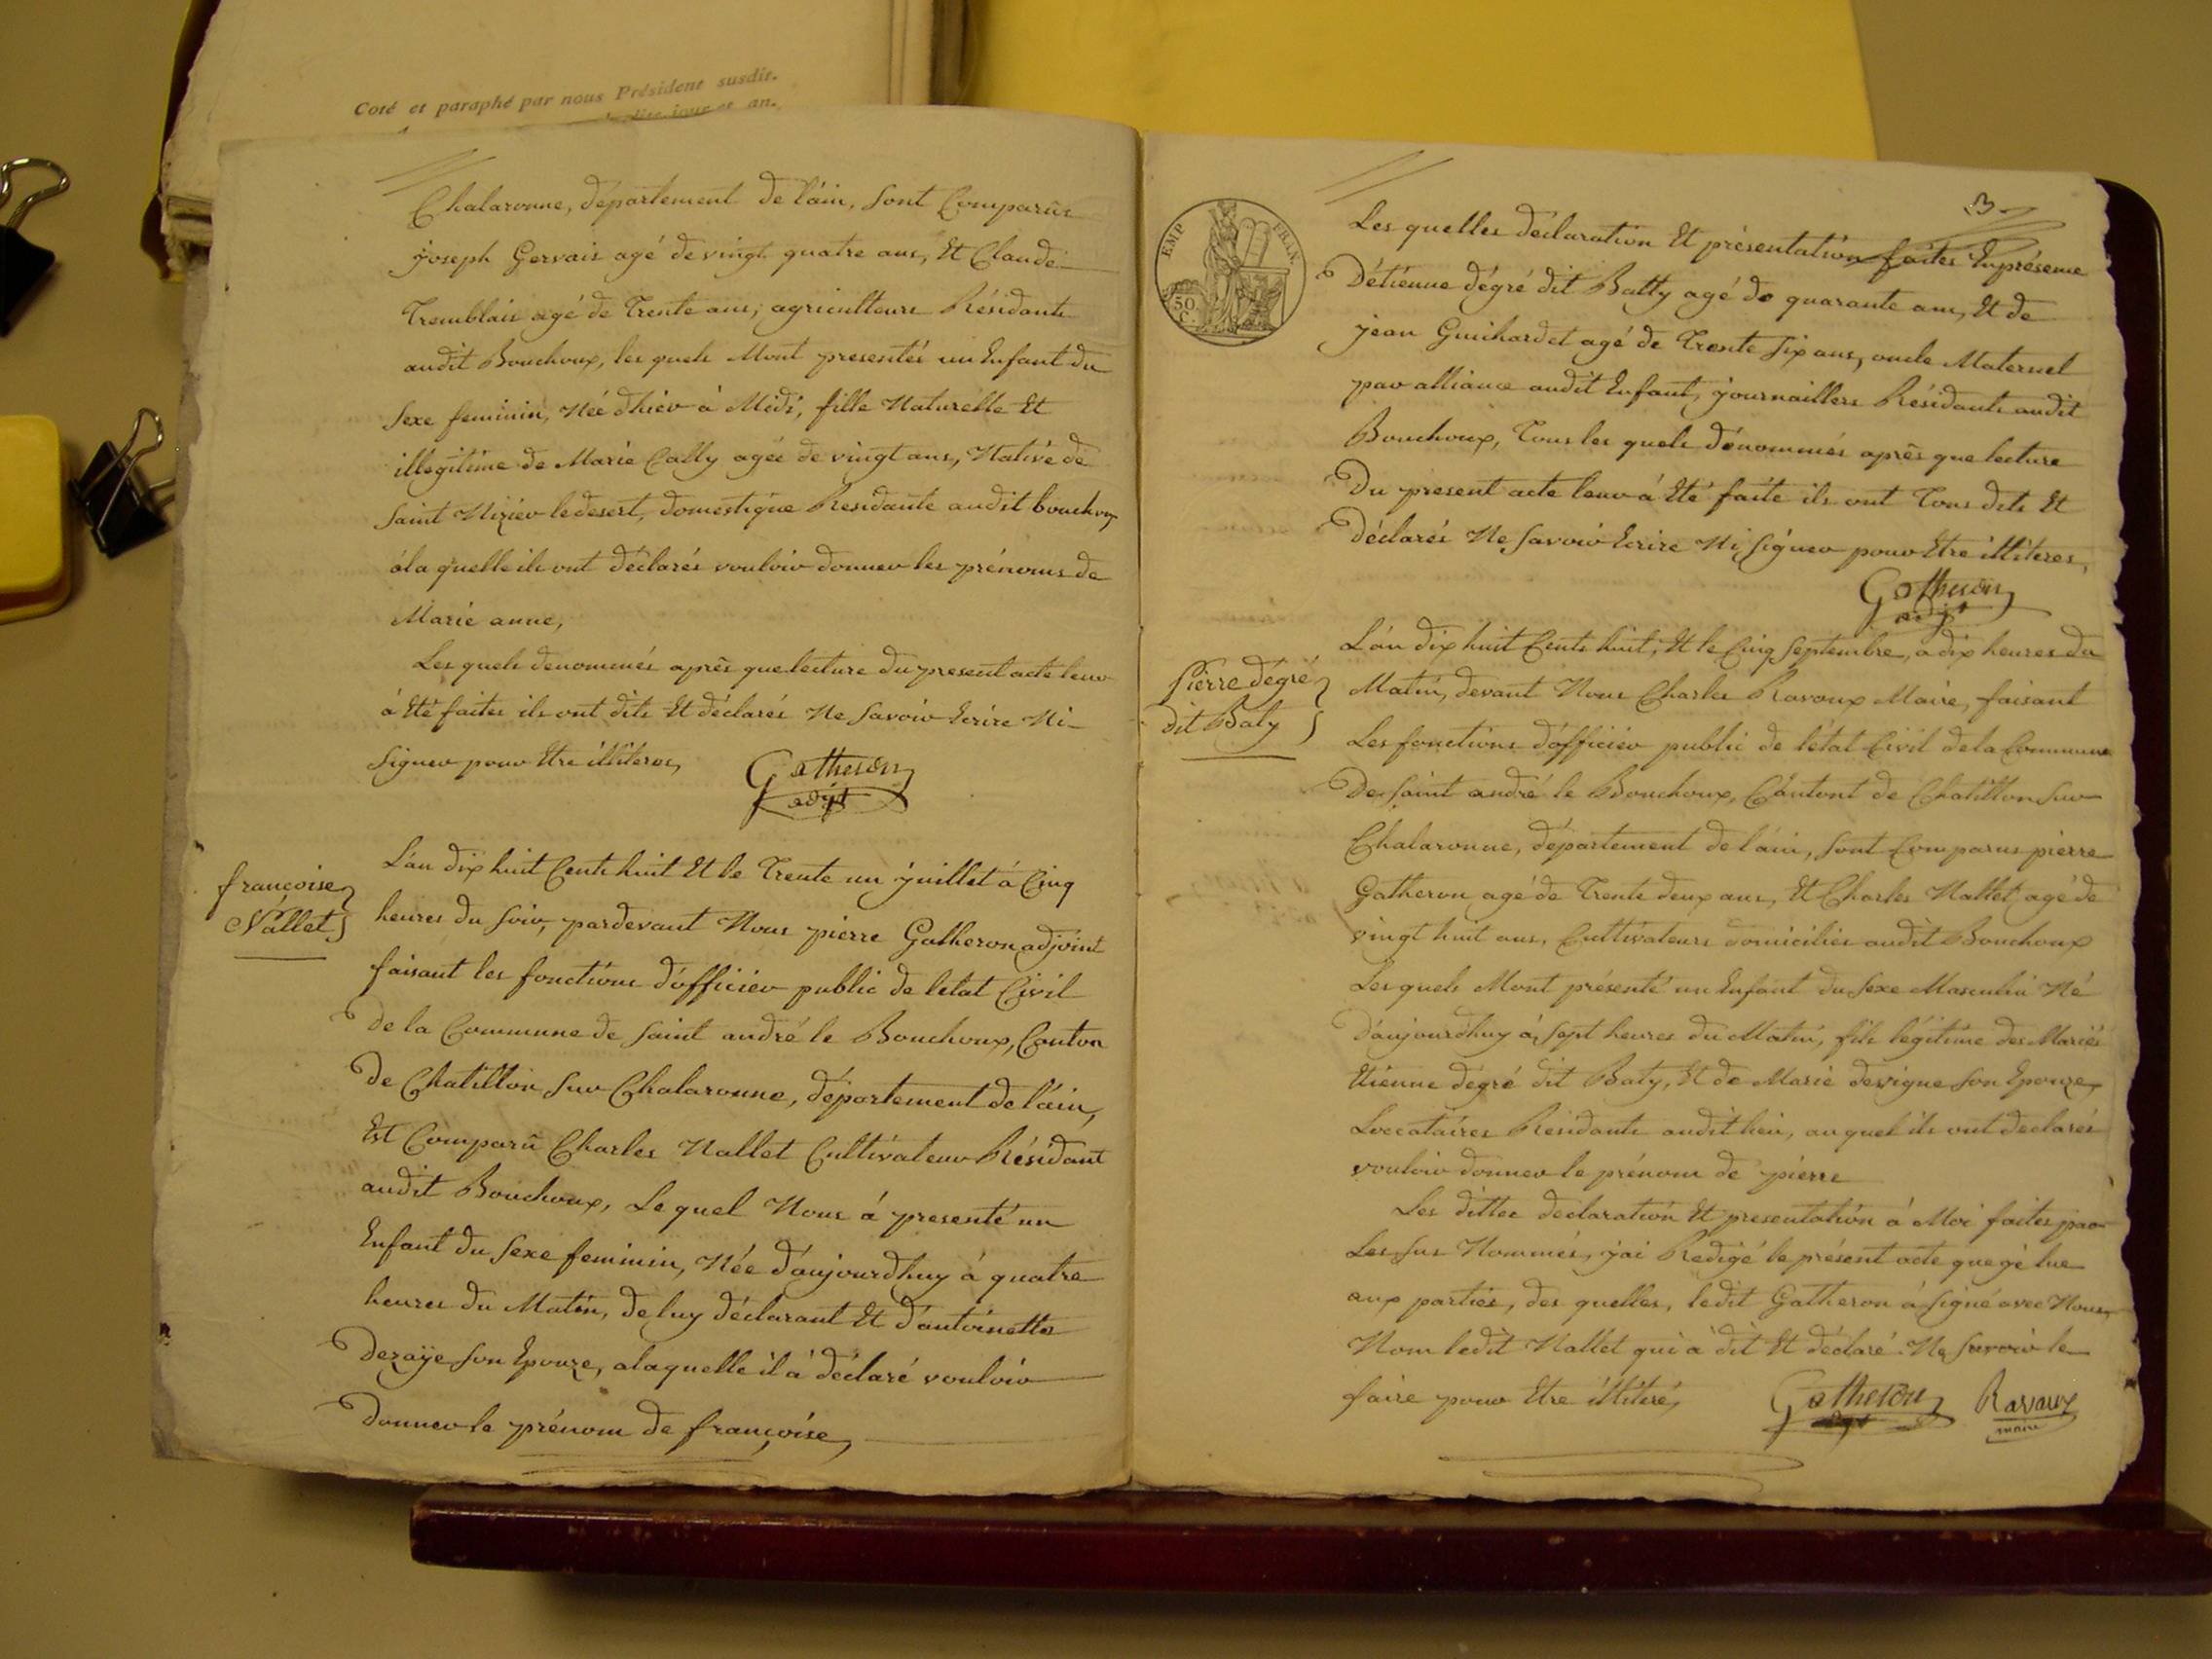 Coté et paraphé par nous Président susdit.
jour et an.
Chalaronne, département de láin, sont Comparûs
joseph Gervais agé de vingt quatre ans, Et Claude
Tremblais agé de Trente ans, agriculteurs Résidants
audit Bouchoux, les quels Mont presentés un Enfant du
sexe feminin, Née dhier à Midi, fille Naturelle Et
illégitime de Marie Cally agée de vingt ans, Native de
saint Nizier le desert, domestique Residante audit bouchoux
ála quelle ils ont déclarés vouloir donner les prénoms de
Marie anne,
Les quels denommés après que lecture du present acte leur
á Eté faites ils ont dits Et déclarés Ne savoir Ecrire Ni
signer pour Etre illiteres,
Gatheron
adjt
françoise
Nallet
Lán dix huit Cents huit Et le Trente un juillet á Cinq
heures du soir, pardevant Nous pierre Gatheron adjoint
faisant les fonctions dófficier public de letat Civil
de la Commune de saint andré le Bouchoux, Canton
de Chatillon sur Chalaronne, département de láin,
Est Comparû Charles Nallet Cultivateur Résidant
audit Bouchoux, Le quel Nous á presenté un
Enfant du sexe feminin, Née dáujourdhuy á quatre
heures du Matin, de luy déclarant Et dántoinette
Dezaÿe son Epouze, alaquelle il á déclaré vouloir
donner le prénom de françoise,
3
EMP FRAN.
50
C.
Les quelles déclaration Et présentation faites Enprésence
détienne dégré dit Batty agé de quarante ans, Et de
jean Guichardet agé de Trente six ans, oncle Maternel
par alliance audit Enfant, journaillers Résidants audit
Bouchoux, Tous les quels dénommés après que lecture
du présent acte leur á Eté faite ils ont Tous dits Et
déclarés Ne savoir Ecrire Ni signer pour Etre illiteres,
Gatheron
adjt
Pierre dégré
dit Baty
Lán dix huit Cents huit, Et le Cinq septembre, a dix heures du
Matin, devant Nous Charles Ravoux Maire, faisant
Les fonctions dófficier public de létat Civil de la Commune
De saint andré le Bouchoux, Cántont de Chatillon sur
Chalaronne, département de láin, sont Comparus pierre
Gatheron agé de Trente deux ans, Et Charles Nallet agé de
vingt huit ans, Cultivateurs domiciliés audit Bouchoux
Les quels Mont présenté un Enfant du sexe Masculin Né
dáujourdhuy á sept heures du Matin, fils légitime des Mariés
Etienne dégré dit Baty, Et de Marie devigne son Epouze,
Loccataires Résidants audit lieu, auquel ils ont declarés
vouloir donner le prénom de pierre
Les dittes declaration Et presentation á Moi faites par
Les sus Nommés, jai Redigé le présent acte que gé lue
aux parties, des quelles, ledit Gatheron á signé avec Nous,
Nom ledit Nallet qui á dit Et déclaré Ne savoir le
faire pour Etre illiteré,
Gatheron
adjt
Ravoux
maire